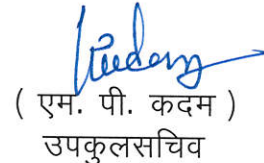 ( एम. पी. कदम )
उपकुलसचिव